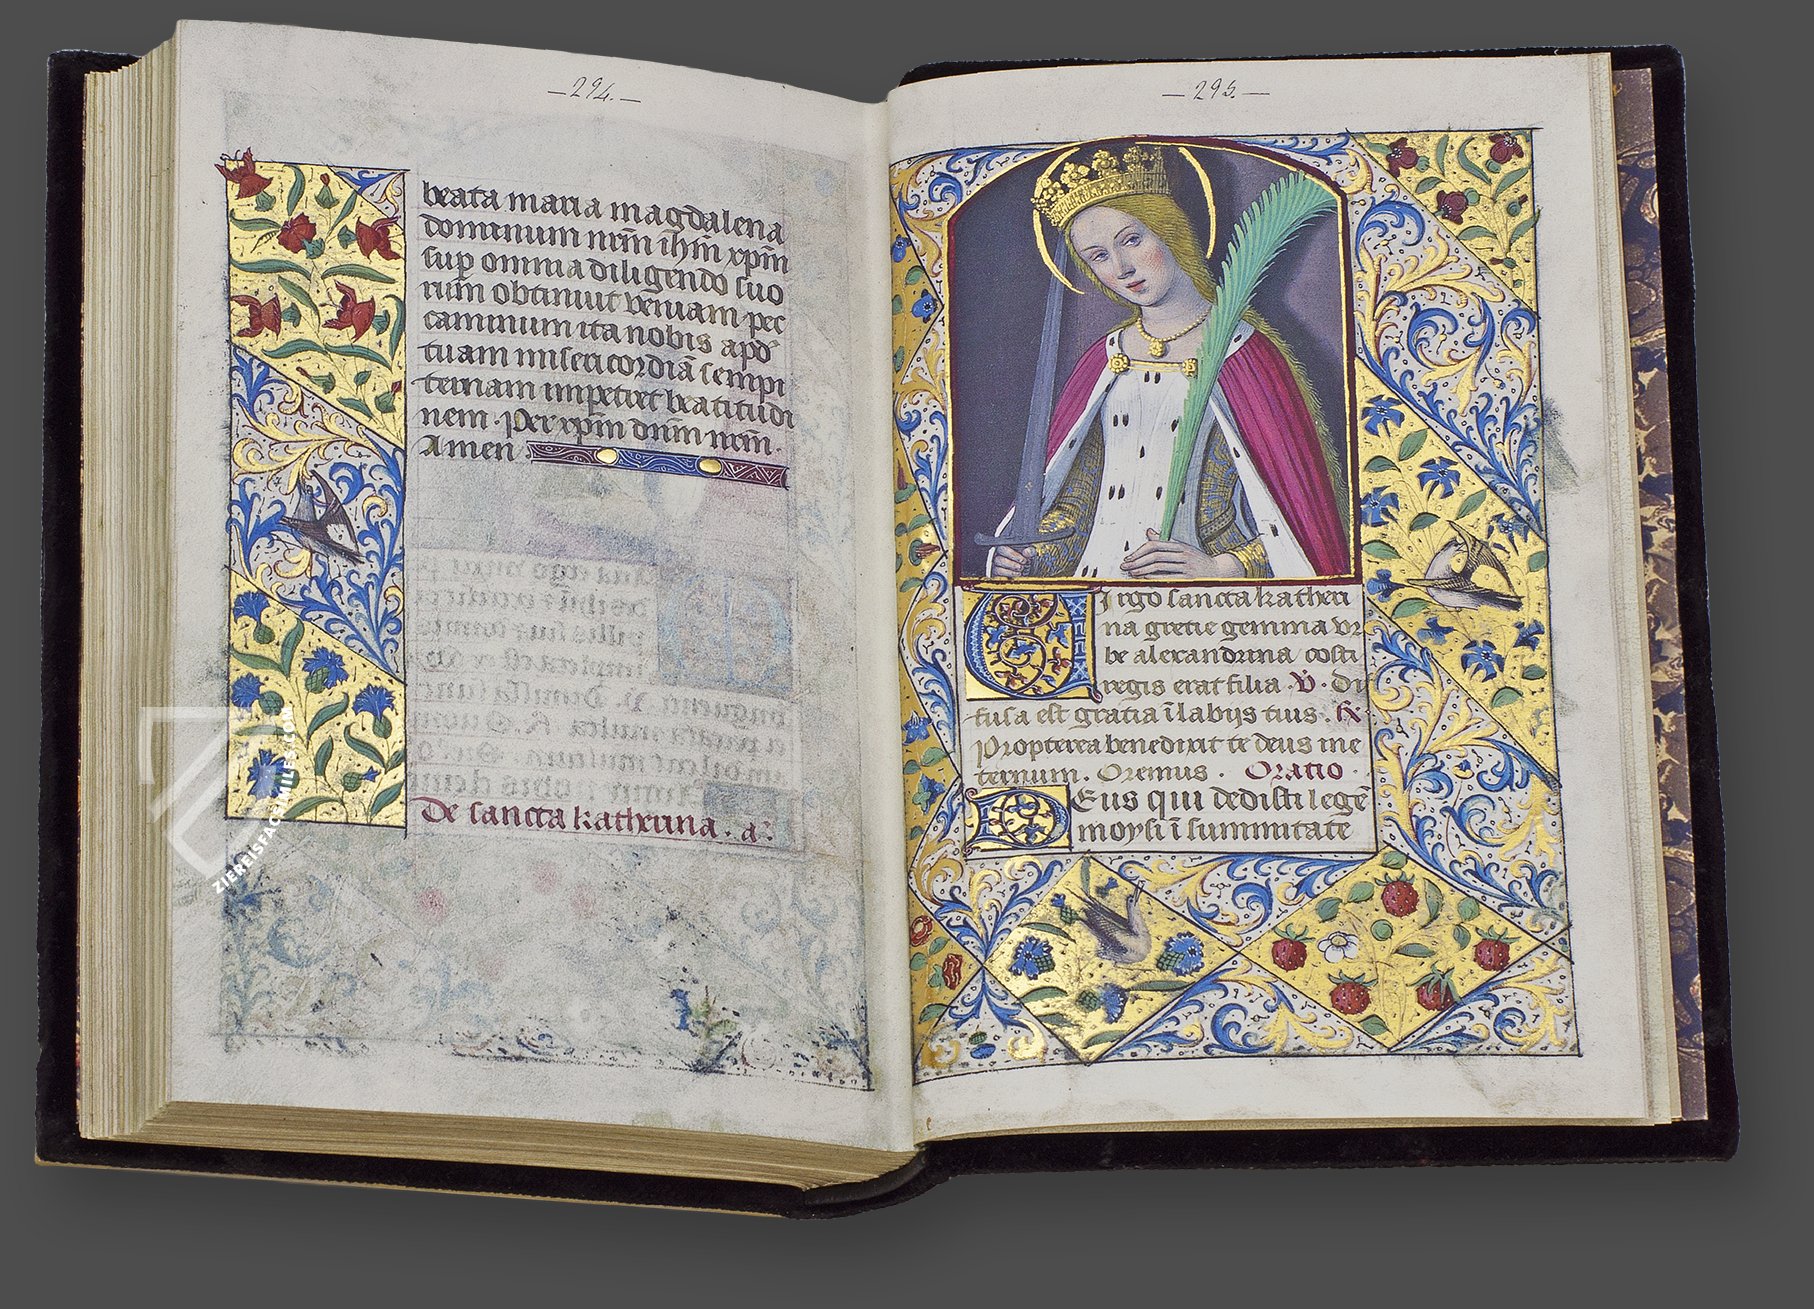 —294.—
beata maria magdalena
dominum nr̃m ih̃m xp̃m
sup̲ omnia diligendo suo
rum obtinuit veniam pec
caminum ita nobis apd̓
tuam misericordiã sempi
ternam impetret beatitudi
nem. Per xp̃m dñm nr̃m.
Amen.
De sancta katherina. a͂.
—295.—
Virgo sancta katheri
na grecie gemma vr
be alexandrina costi
regis erat filia. V̉. Di
fusa est gratia ĩ labijs tuis. R̷
Propterea benedixit te deus in e
ternum. Oremus. Oratio.
Deus qui dedisti legẽ
moysi ĩ summitate
ZIEREISFACSIMILES.COM